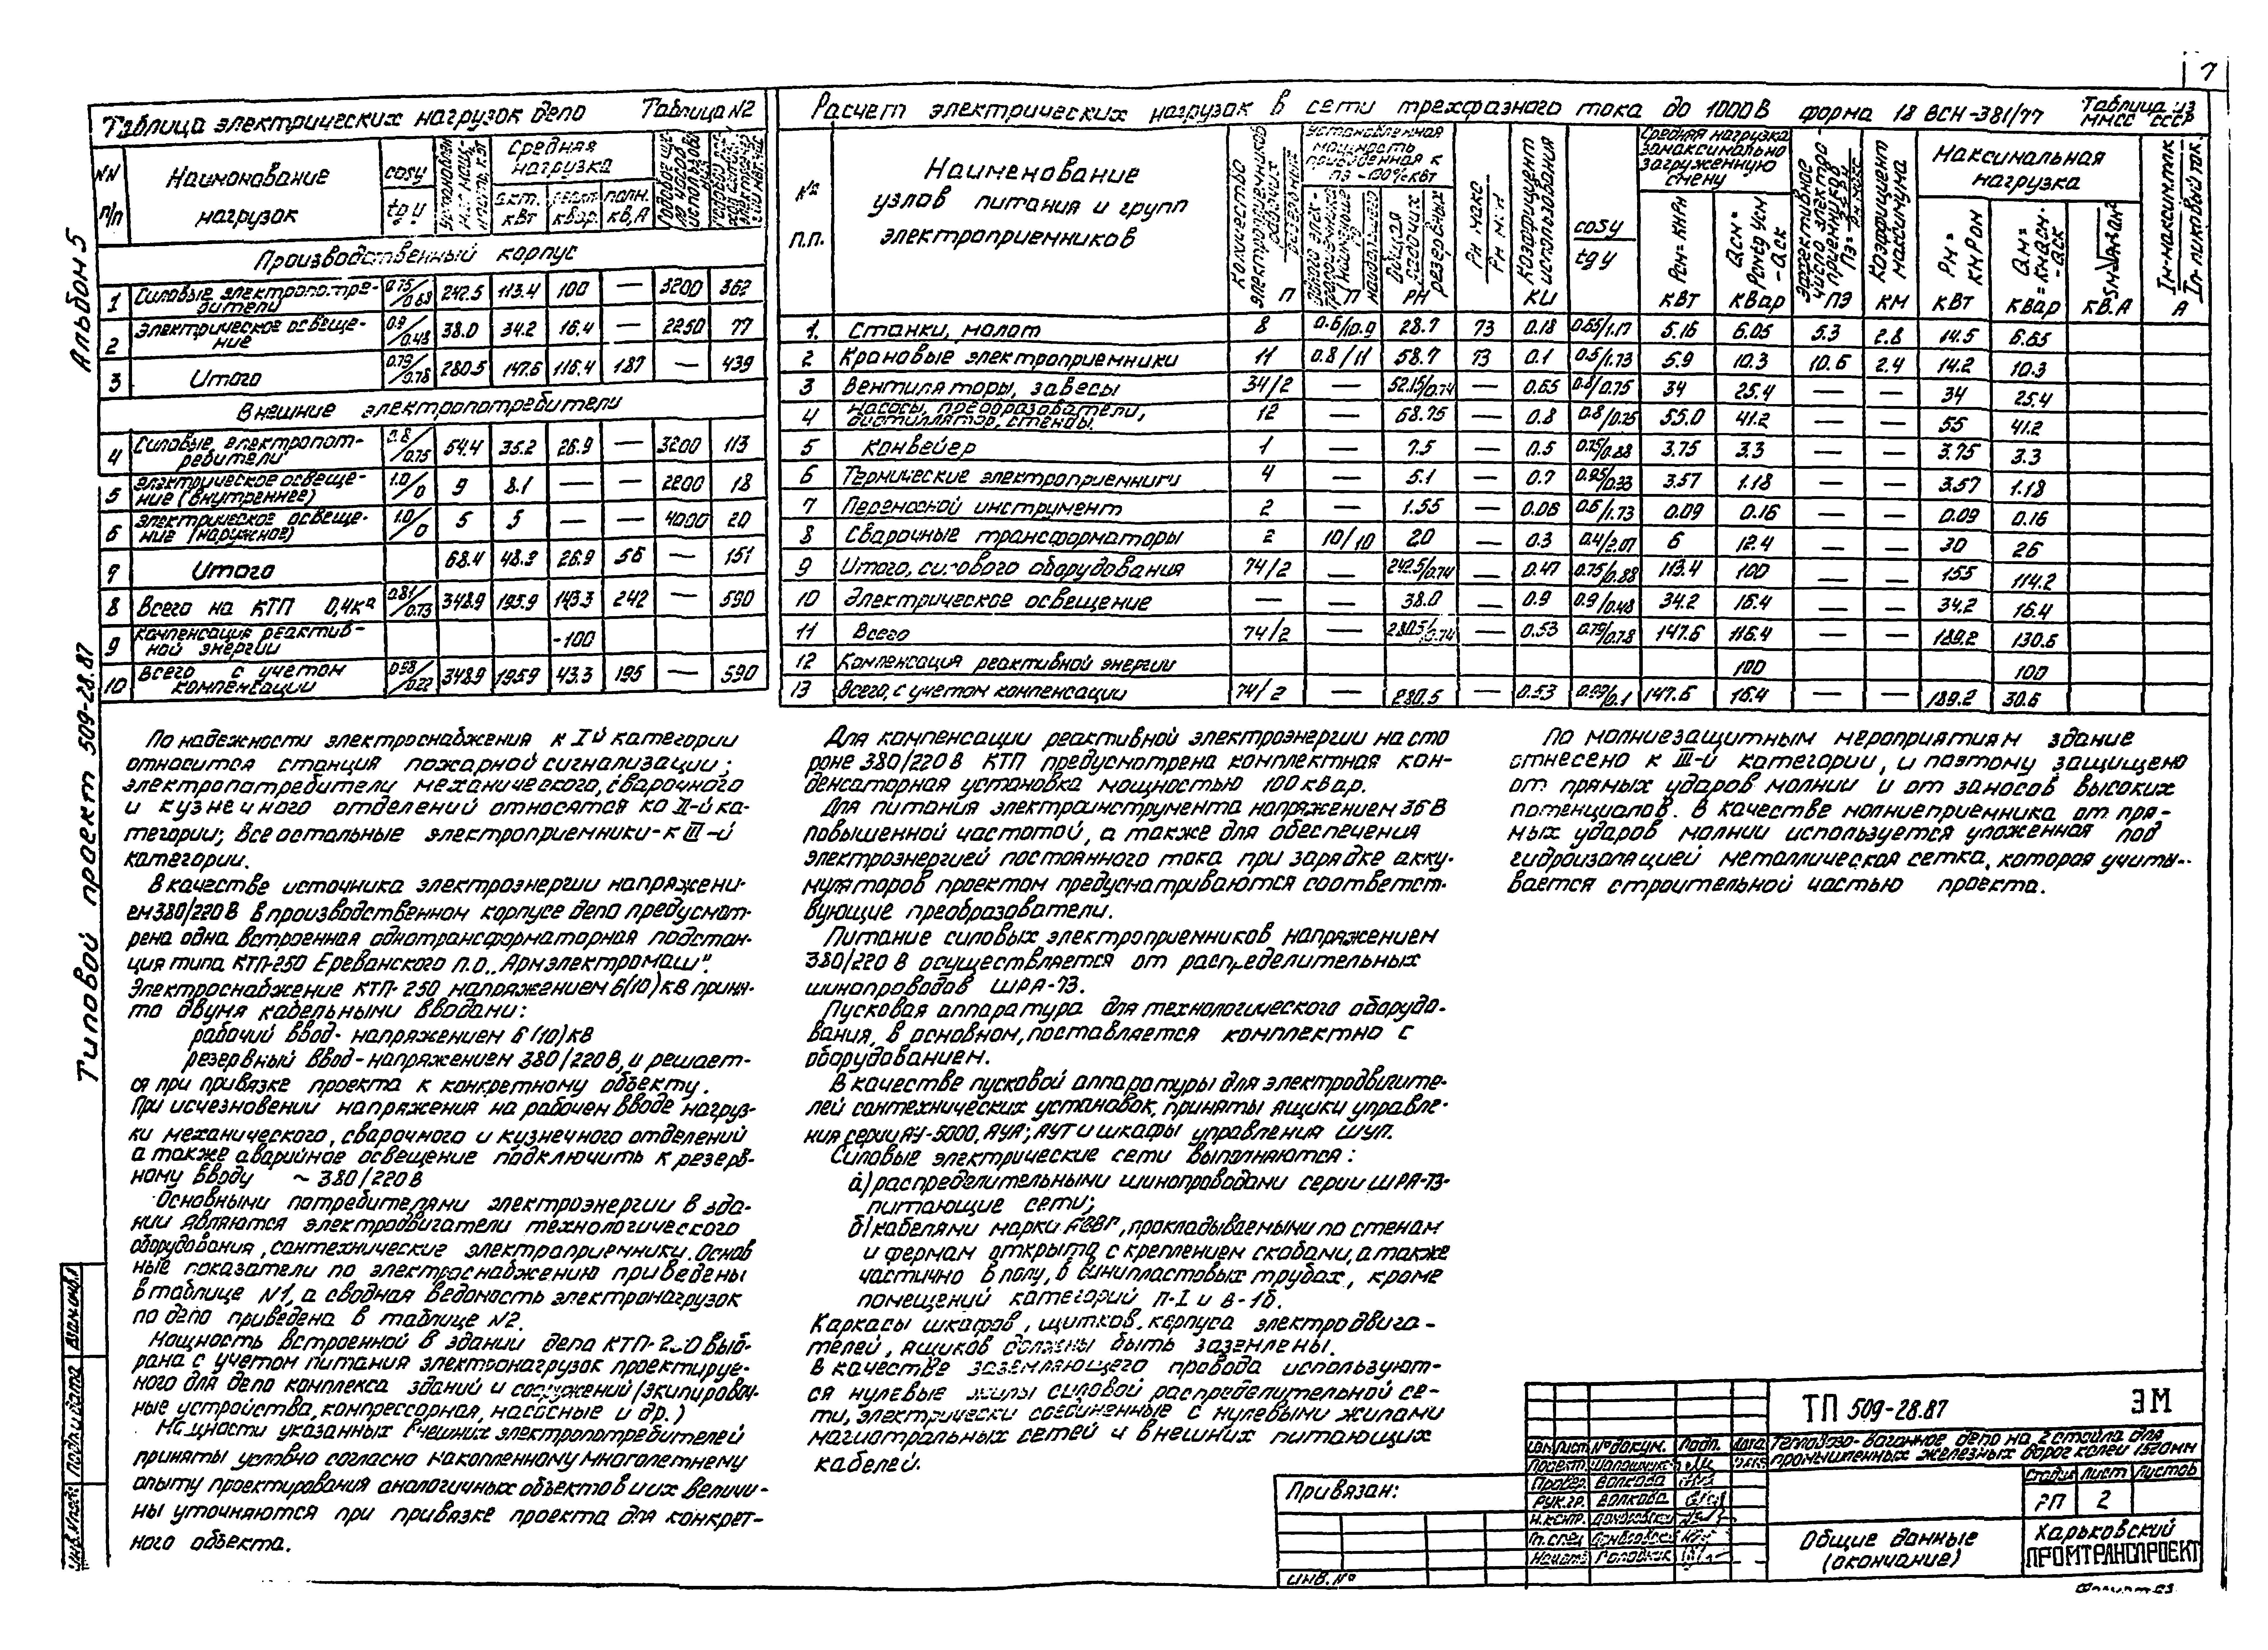 7
Альбом 5
Типовой проект 509-28.87
Таблица электрических нагрузок депо Таблица N2
NN п/п
Наименование нагрузок
cosφ
tgφ
Средняя нагрузка
акт. кВт
реакт. квар
полн. кВ.А
Производственный корпус
1 Силовые электропотребители 0.75/0.88 242.5 113.4 100 — 3200 362
2 Электрическое освещение 0.9/0.48 38.0 34.2 16.4 — 2250 77
3 Итого 0.79/0.78 280.5 147.6 116.4 187 — 439
Внешние электропотребители
4 Силовые электропотребители 0.8/0.75 54.4 35.2 26.9 — 3200 113
5 Электрическое освещение (внутреннее) 1.0/0 9 8.1 — — 2200 18
6 Электрическое освещение (наружное) 1.0/0 5 5 — — 4000 20
7 Итого 68.4 48.3 26.9 56 — 151
8 Всего на КТП 0,4кв 0.81/0.73 348.9 195.9 143.3 242 — 590
9 Компенсация реактивной энергии -100
10 Всего с учетом компенсации 0.98/0.22 348.9 195.9 43.3 195 — 590
Расчет электрических нагрузок в сети трехфазного тока до 1000 В форма 18 ВСН-381/77 Таблица из ММСС СССР
№ п.п.
Наименование
узлов питания и групп
электроприемников
Количество электроприемников рабочих резервных п
Установленная мощность приведенная к ПЭ -100% кВт
Рн макс
Рн мin
Коэффициент использования КИ
cosφ
tgφ
Средняя нагрузка за максимально загруженную смену
кВт
квар
Эффективное число электроприемников ПЭ
Коэффициент максимума КМ
Максимальная нагрузка
кВт
квар
кВ.А
А
1. Станки, молот 8 0.6/10.9 28.7 73 0.18 0.65/1.17 5.16 6.05 5.3 2.8 14.5 6.65
2 Крановые электроприемники 11 0.8/11 58.7 73 0.1 0.5/1.73 5.9 10.3 10.6 2.4 14.2 10.3
3 Вентиляторы, завесы 34/2 — 52.15/0.74 — 0.65 0.8/0.75 34 25.4 — — 34 25.4
4 Насосы, преобразователи, дистиллятор, стенды. 12 — 68.75 — 0.8 0.8/0.75 55.0 41.2 — — 55 41.2
5 Конвейер 1 — 7.5 — 0.5 0.75/0.88 3.75 3.3 — — 3.75 3.3
6 Термические электроприемники 4 — 5.1 — 0.7 0.95/0.33 3.57 1.18 — — 3.57 1.18
7 Переносной инструмент 2 — 1.55 — 0.06 0.5/1.73 0.09 0.16 — — 0.09 0.16
8 Сварочные трансформаторы 2 10/10 20 — 0.3 0.4/2.07 6 12.4 — — 30 26
9 Итого, силового оборудования 74/2 — 242.5/0.74 — 0.47 0.75/0.88 113.4 100 — — 155 114.2
10 Электрическое освещение — — 38.0 — 0.9 0.9/0.48 34.2 16.4 — — 34.2 16.4
11 Всего 74/2 — 280.5/0.74 — 0.53 0.79/0.78 147.6 116.4 — — 189.2 130.6
12 Компенсация реактивной энергии 100 100
13 Всего, с учетом компенсации 74/2 — 280.5 — 0.53 0.99/0.1 147.6 16.4 — — 189.2 30.6
По надежности электроснабжения к Iй категории
относится станция пожарной сигнализации;
электропотребители механического, сварочного
и кузнечного отделений относятся ко II-й ка-
тегории; все остальные электроприемники-к III-й
категории.
В качестве источника электроэнергии напряжени-
ем 380/220 В в производственном корпусе депо предусмот-
рена одна встроенная однотрансформаторная подстан-
ция типа КТП-250 Ереванского п.о. „Армэлектромаш".
Электроснабжение КТП-250 напряжением 6(10)кв приня-
то двумя кабельными вводами:
рабочий ввод- напряжением 6(10)кв
резервный ввод-напряжением 380/220В, и решает-
ся при привязке проекта к конкретному объекту.
При исчезновении напряжения на рабочем вводе нагруз-
ки механического, сварочного и кузнечного отделений
а также аварийное освещение подключить к резерв-
ному вводу ~ 380/220В
Основными потребителями электроэнергии в зда-
нии являются электродвигатели технологического
оборудования, сантехнические электроприемники. Основ
ные показатели по электроснабжению приведены
в таблице N1, а сводная ведомость электронагрузок
по депо приведена в таблице N2.
Мощность встроенной в здании депо КТП-250 выб-
рана с учетом питания электронагрузок проектируе-
мого для депо комплекса зданий и сооружений (экипировоч-
ные устройства, компрессорная, насосные и др.)
Мощности указанных внешних электропотребителей
приняты условно согласно накопленному многолетнему
опыту проектирования аналогичных объектов и их величи-
ны уточняются при привязке проекта для конкрет-
ного объекта.
Для компенсации реактивной электроэнергии на сто
роне 380/220 В КТП предусмотрена комплектная кон-
денсаторная установка мощностью 100 квар.
Для питания электроинструмента напряжением 36 В
повышенной частотой, а также для обеспечения
электроэнергией постоянного тока при зарядке акку-
муляторов проектом предусматриваются соответст-
вующие преобразователи.
Питание силовых электроприемников напряжением
380/220 В осуществляется от распределительных
шинопроводов ШРА-73.
Пусковая аппаратура для технологического оборудо-
вания, в основном, поставляется комплектно с
оборудованием.
В качестве пусковой аппаратуры для электродвигате-
лей сантехнических установок, приняты ящики управле-
ния серии ЯУ-5000, ЯУА; ЯУТ и шкафы управления ШУП.
Силовые электрические сети выполняются:
а) распределительными шинопроводами серии ШРА-73-
питающие сети;
б) кабелями марки АВВГ, прокладываемыми по стенам
и фермам открыто с креплением скобами, а также
частично в полу, в винипластовых трубах, кроме
помещений категорий П-I и В-1б.
Каркасы шкафов, щитков, корпуса электродвига-
телей, ящиков должны быть заземлены.
В качестве заземляющего провода используют-
ся нулевые жилы силовой распределительной се-
ти, электрически соединенные с нулевыми жилами
магистральных сетей и внешних питающих
кабелей.
По молниезащитным мероприятиям здание
отнесено к III-й категории, и поэтому защищено
от прямых ударов молнии и от заносов высоких
потенциалов. В качестве молниеприемника от пря-
мых ударов молнии используется уложенная под
гидроизоляцией металлическая сетка, которая учиты-
вается строительной частью проекта.
Взам.инв.N
Подп. и дата
Инв.Nподл.
Привязан:
инв.№
ТП 509-28.87 ЭМ
Изм Лист № докум. Подп. Дата
Провер. Волкова
Рук.гр. Волкова
Н.контр.
Гл.спец
Тепловозо-вагонное депо на 2 стойла для
промышленных железных дорог колеи 1520мм
Стадия Лист Листов
РП 2
Общие данные
(окончание)
Харьковский
ПРОМТРАНСПРОЕКТ